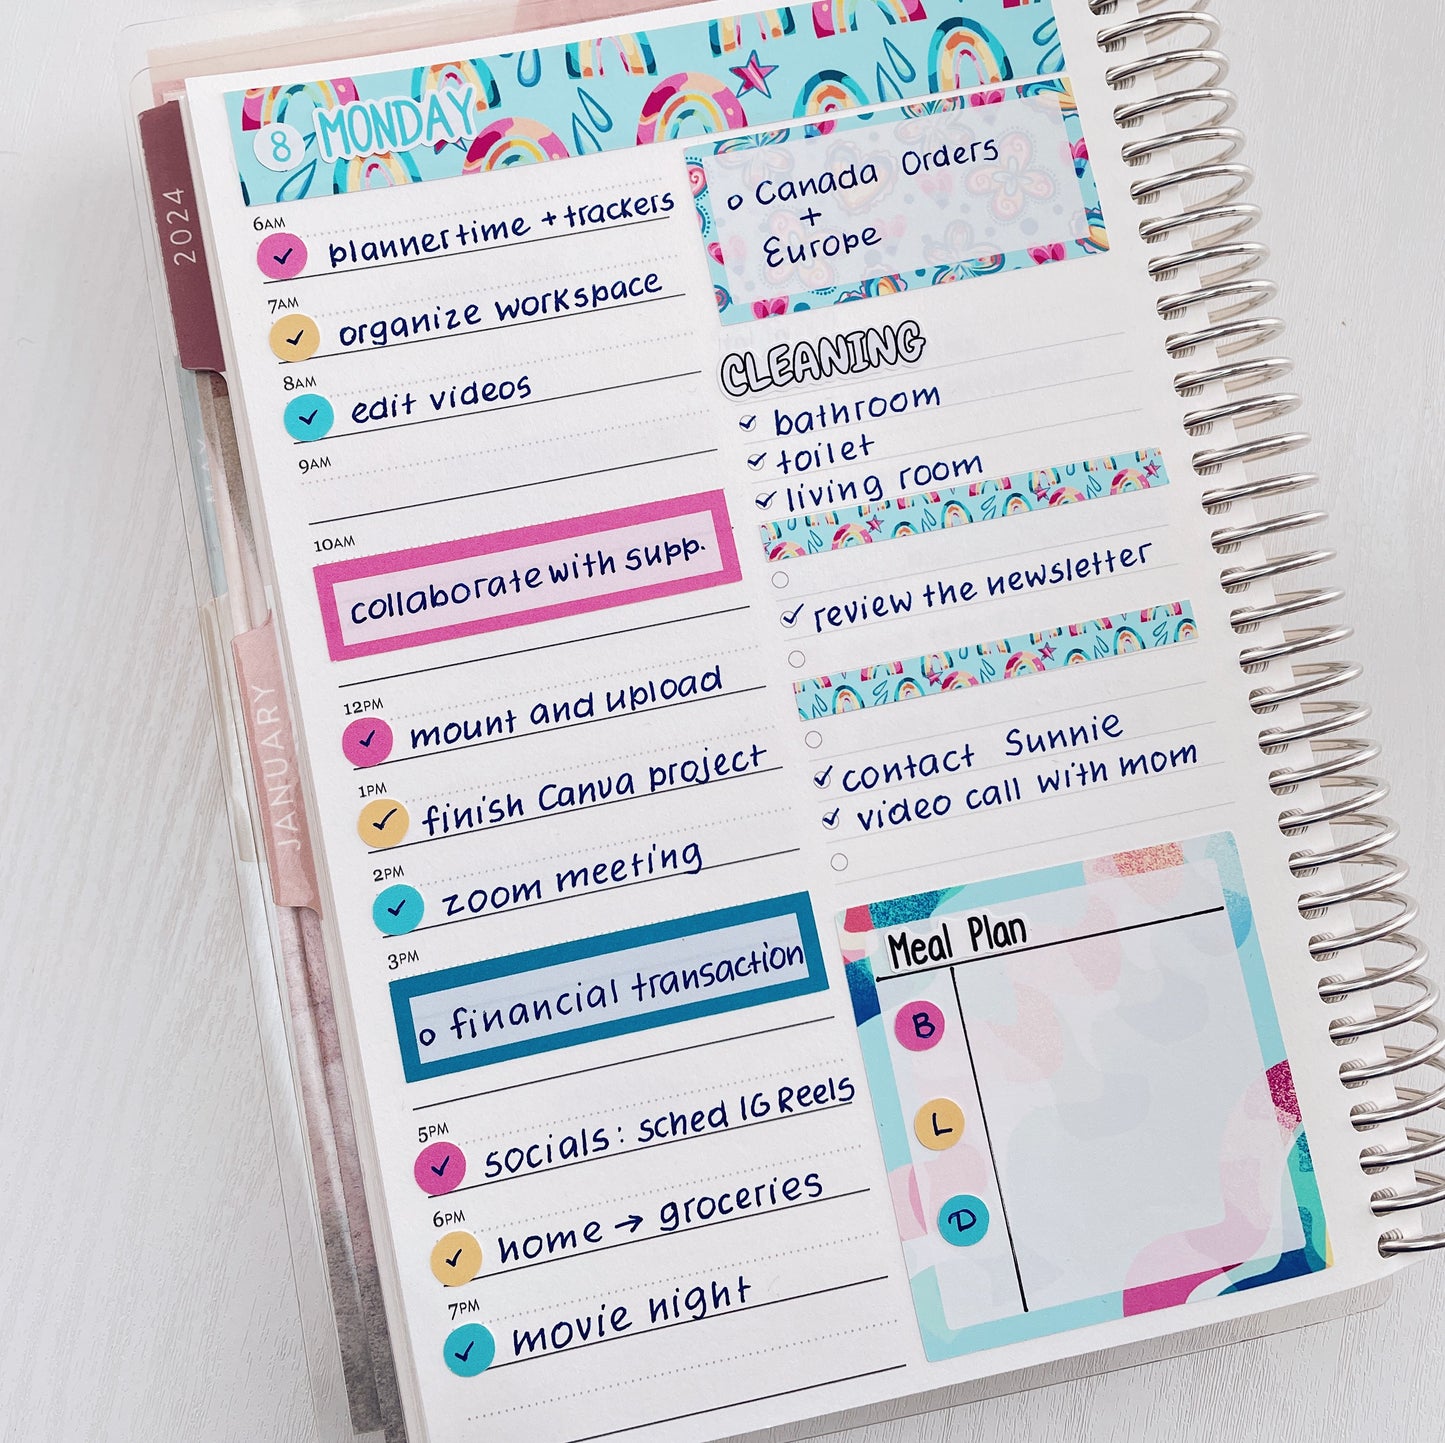 8 MONDAY
6AM
planner time + trackers
7AM
organize workspace
8AM
edit videos
9AM
10AM
collaborate with supp.
12PM
mount and upload
1PM
finish Canva project
2PM
zoom meeting
3PM
o financial transaction
5PM
socials: sched IG Reels
6PM
home → groceries
7PM
movie night
o Canada Orders
+
Europe
CLEANING
bathroom
toilet
living room
review the newsletter
contact Sunnie
video call with mom
Meal Plan
B
L
D
2024
JANUARY
MAY